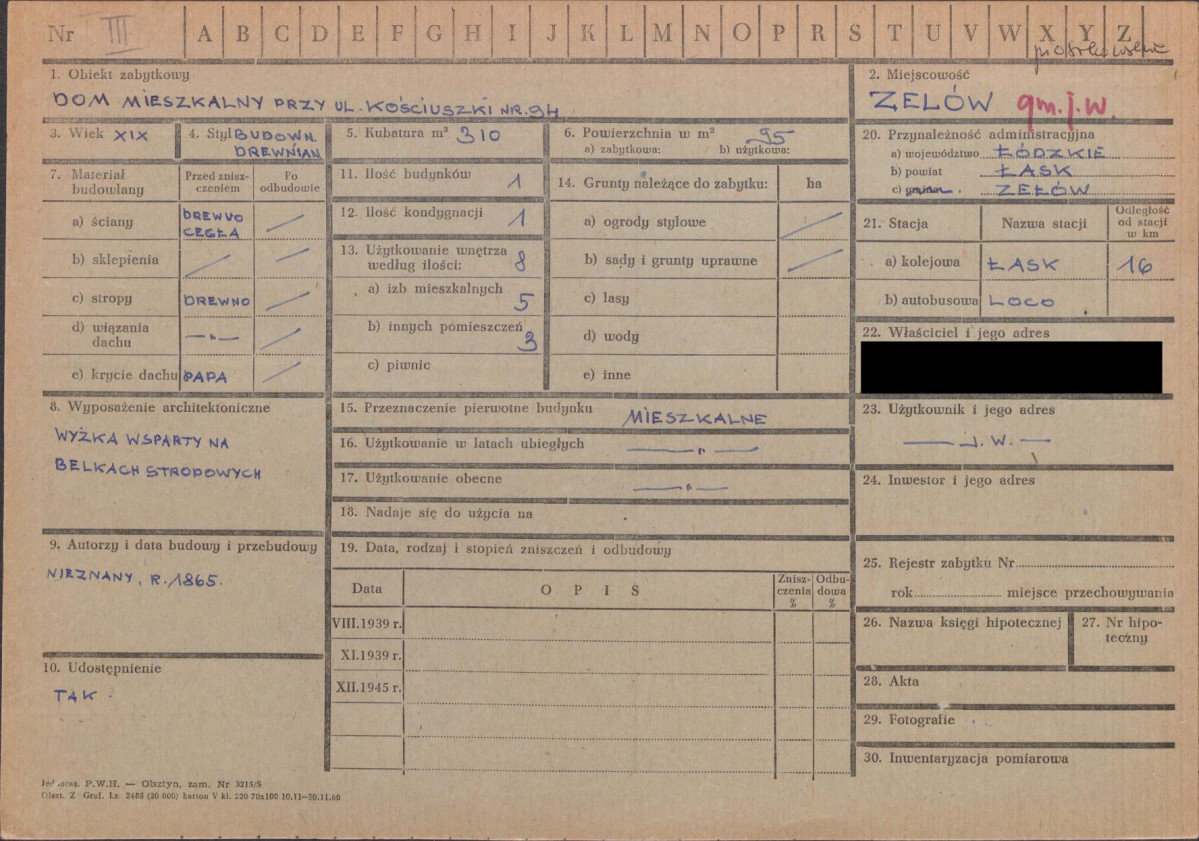 Nr III A B C D E F G H I J K L M N O P R S T U V W X Y Z
piotrkowskie
1. Obiekt zabytkowy
DOM MIESZKALNY PRZY UL. KOŚCIUSZKI NR. 94
2. Miejscowość
ZELÓW gm. j. w.
3. Wiek XIX
4. Styl BUDOWN.
DREWNIAN
5. Kubatura m³ 310
6. Powierzchnia w m² 95
a) zabytkowa: b) użytkowa:
7. Materiał
budowlany
Przed znisz-
czeniem
Po
odbudowie
a) ściany DREWNO
CEGŁA
b) sklepienia
c) stropy DREWNO
d) wiązania
dachu — „ —
e) krycie dachu PAPA
8. Wyposażenie architektoniczne
WYŻKA WSPARTY NA
BELKACH STROPOWYCH
9. Autorzy i data budowy i przebudowy
NIEZNANY, R. 1865.
10. Udostępnienie
TAK
11. Ilość budynków 1
12. Ilość kondygnacji 1
13. Użytkowanie wnętrza
według ilości: 8
a) izb mieszkalnych 5
b) innych pomieszczeń 3
c) piwnic
14. Grunty należące do zabytku: ha
a) ogrody stylowe
b) sady i grunty uprawne
c) lasy
d) wody
e) inne
15. Przeznaczenie pierwotne budynku MIESZKALNE
16. Użytkowanie w latach ubiegłych — „ —
17. Użytkowanie obecne — „ —
18. Nadaje się do użycia na
19. Data, rodzaj i stopień zniszczeń i odbudowy
Data OPIS Znisz-
czenia
%
Odbu-
dowa
%
VIII.1939 r.
XI.1939 r.
XII.1945 r.
20. Przynależność administracyjna
a) województwo ŁÓDZKIE
b) powiat ŁASK
c) gmina ZEŁÓW
21. Stacja Nazwa stacji Odległość
od stacji
w km
a) kolejowa ŁASK 16
b) autobusowa LOCO
22. Właściciel i jego adres
23. Użytkownik i jego adres
— J. W. —
24. Inwestor i jego adres
25. Rejestr zabytku Nr
rok miejsce przechowywania
26. Nazwa księgi hipotecznej
27. Nr hipo-
teczny
28. Akta
29. Fotografie
30. Inwentaryzacja pomiarowa
P.W.H. — Olsztyn, zam. Nr 3215/S
Olszt. Z Graf. Lz. 2485 (30 000) karton V kl. 220 70x100 10.11—30.11.60